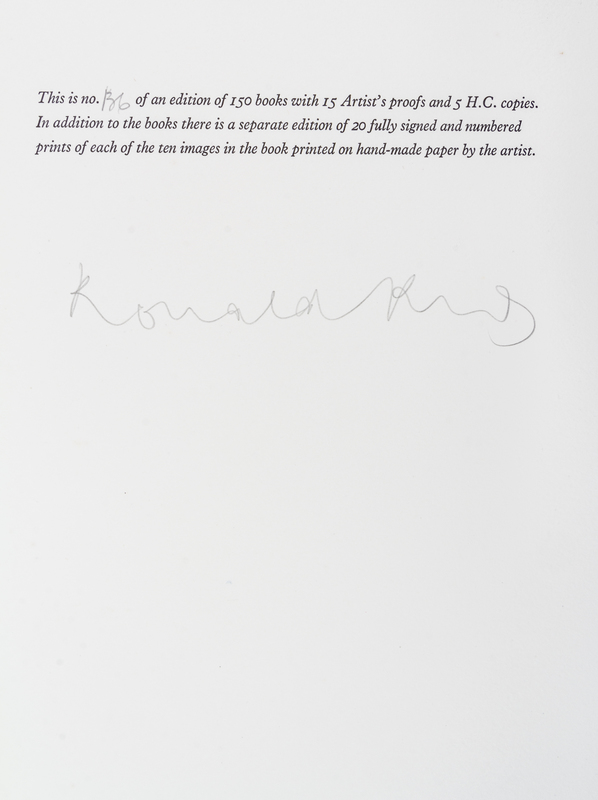 This is no. 136 of an edition of 150 books with 15 Artist's proofs and 5 H.C. copies.
In addition to the books there is a separate edition of 20 fully signed and numbered
prints of each of the ten images in the book printed on hand-made paper by the artist.
Ronald King